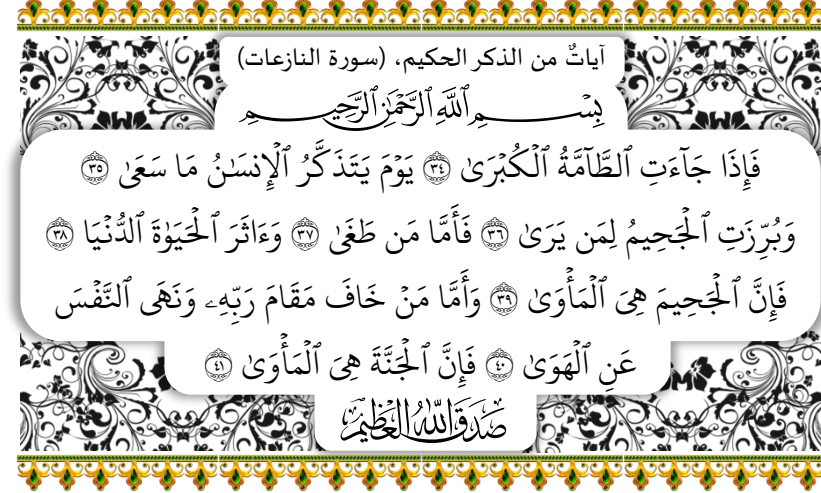 آياتٌ من الذكر الحكيم، (سورة النازعات)
بِسْمِ ٱللَّهِ ٱلرَّحْمَٰنِ ٱلرَّحِيمِ
فَإِذَا جَآءَتِ ٱلطَّآمَّةُ ٱلْكُبْرَىٰ ٣٤ يَوْمَ يَتَذَكَّرُ ٱلْإِنسَٰنُ مَا سَعَىٰ ٣٥
وَبُرِّزَتِ ٱلْجَحِيمُ لِمَن يَرَىٰ ٣٦ فَأَمَّا مَن طَغَىٰ ٣٧ وَءَاثَرَ ٱلْحَيَوٰةَ ٱلدُّنْيَا ٣٨
فَإِنَّ ٱلْجَحِيمَ هِىَ ٱلْمَأْوَىٰ ٣٩ وَأَمَّا مَنْ خَافَ مَقَامَ رَبِّهِۦ وَنَهَى ٱلنَّفْسَ
عَنِ ٱلْهَوَىٰ ٤٠ فَإِنَّ ٱلْجَنَّةَ هِىَ ٱلْمَأْوَىٰ ٤١
صَدَقَ اللَّهُ الْعَظِيمُ